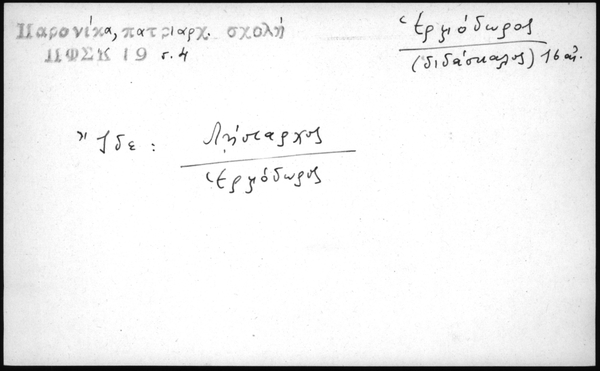 Παρονίκα, πατριαρχ. σχολή
ΠΦΣΚ 19 σ. 4
Ἑρμόδωρος
(διδάσκαλος) 16 αἰ.
Ἴδε: Λήσταρχος
Ἑρμόδωρος